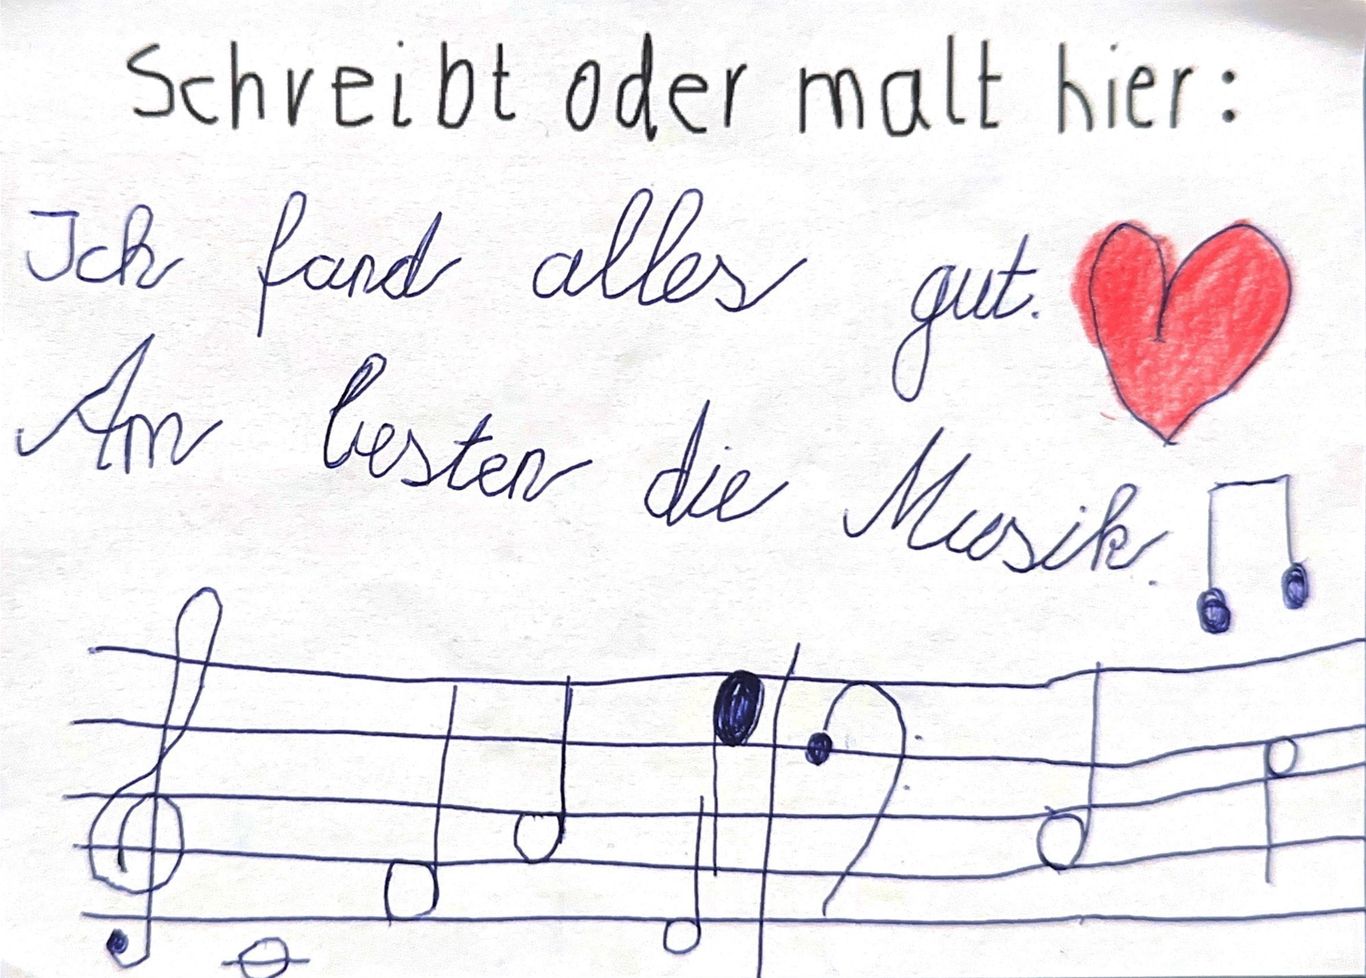 Schreibt oder malt hier:
Ich fand alles gut.
Am besten die Musik.